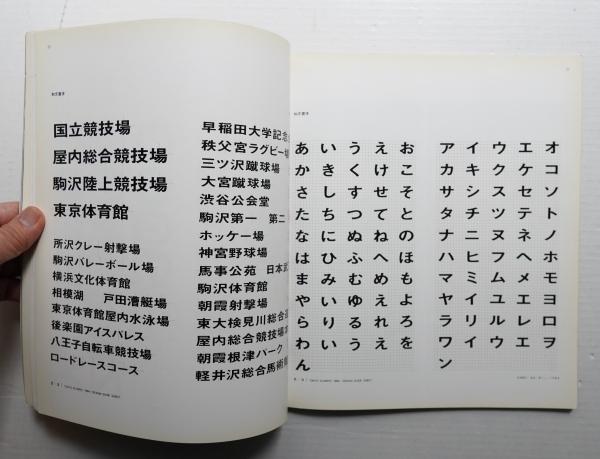 国立競技場
屋内総合競技場
駒沢陸上競技場
東京体育館
所沢クレー射撃場
駒沢バレーボール場
横浜文化体育館
相模湖　戸田漕艇場
東京体育館屋内水泳場
後楽園アイスパレス
八王子自転車競技場
ロードレースコース
早稲田大学記念
秩父宮ラグビー場
三ツ沢蹴球場
大宮蹴球場
渋谷公会堂
駒沢第一　第二
ホッケー場
神宮野球場
馬事公苑　日本武
駒沢体育館
朝霞射撃場
東大検見川総合
屋内総合競技場
朝霞根津パーク
軽井沢総合馬術
あいうえお
かきくけこ
さしすせそ
たちつてと
なにぬねの
はひふへほ
まみむめも
やいゆえよ
らりるれろ
わいうえを
ん
アイウエオ
カキクケコ
サシスセソ
タチツテト
ナニヌネノ
ハヒフヘホ
マミムメモ
ヤイユエヨ
ラリルレロ
ワイウエヲ
ン